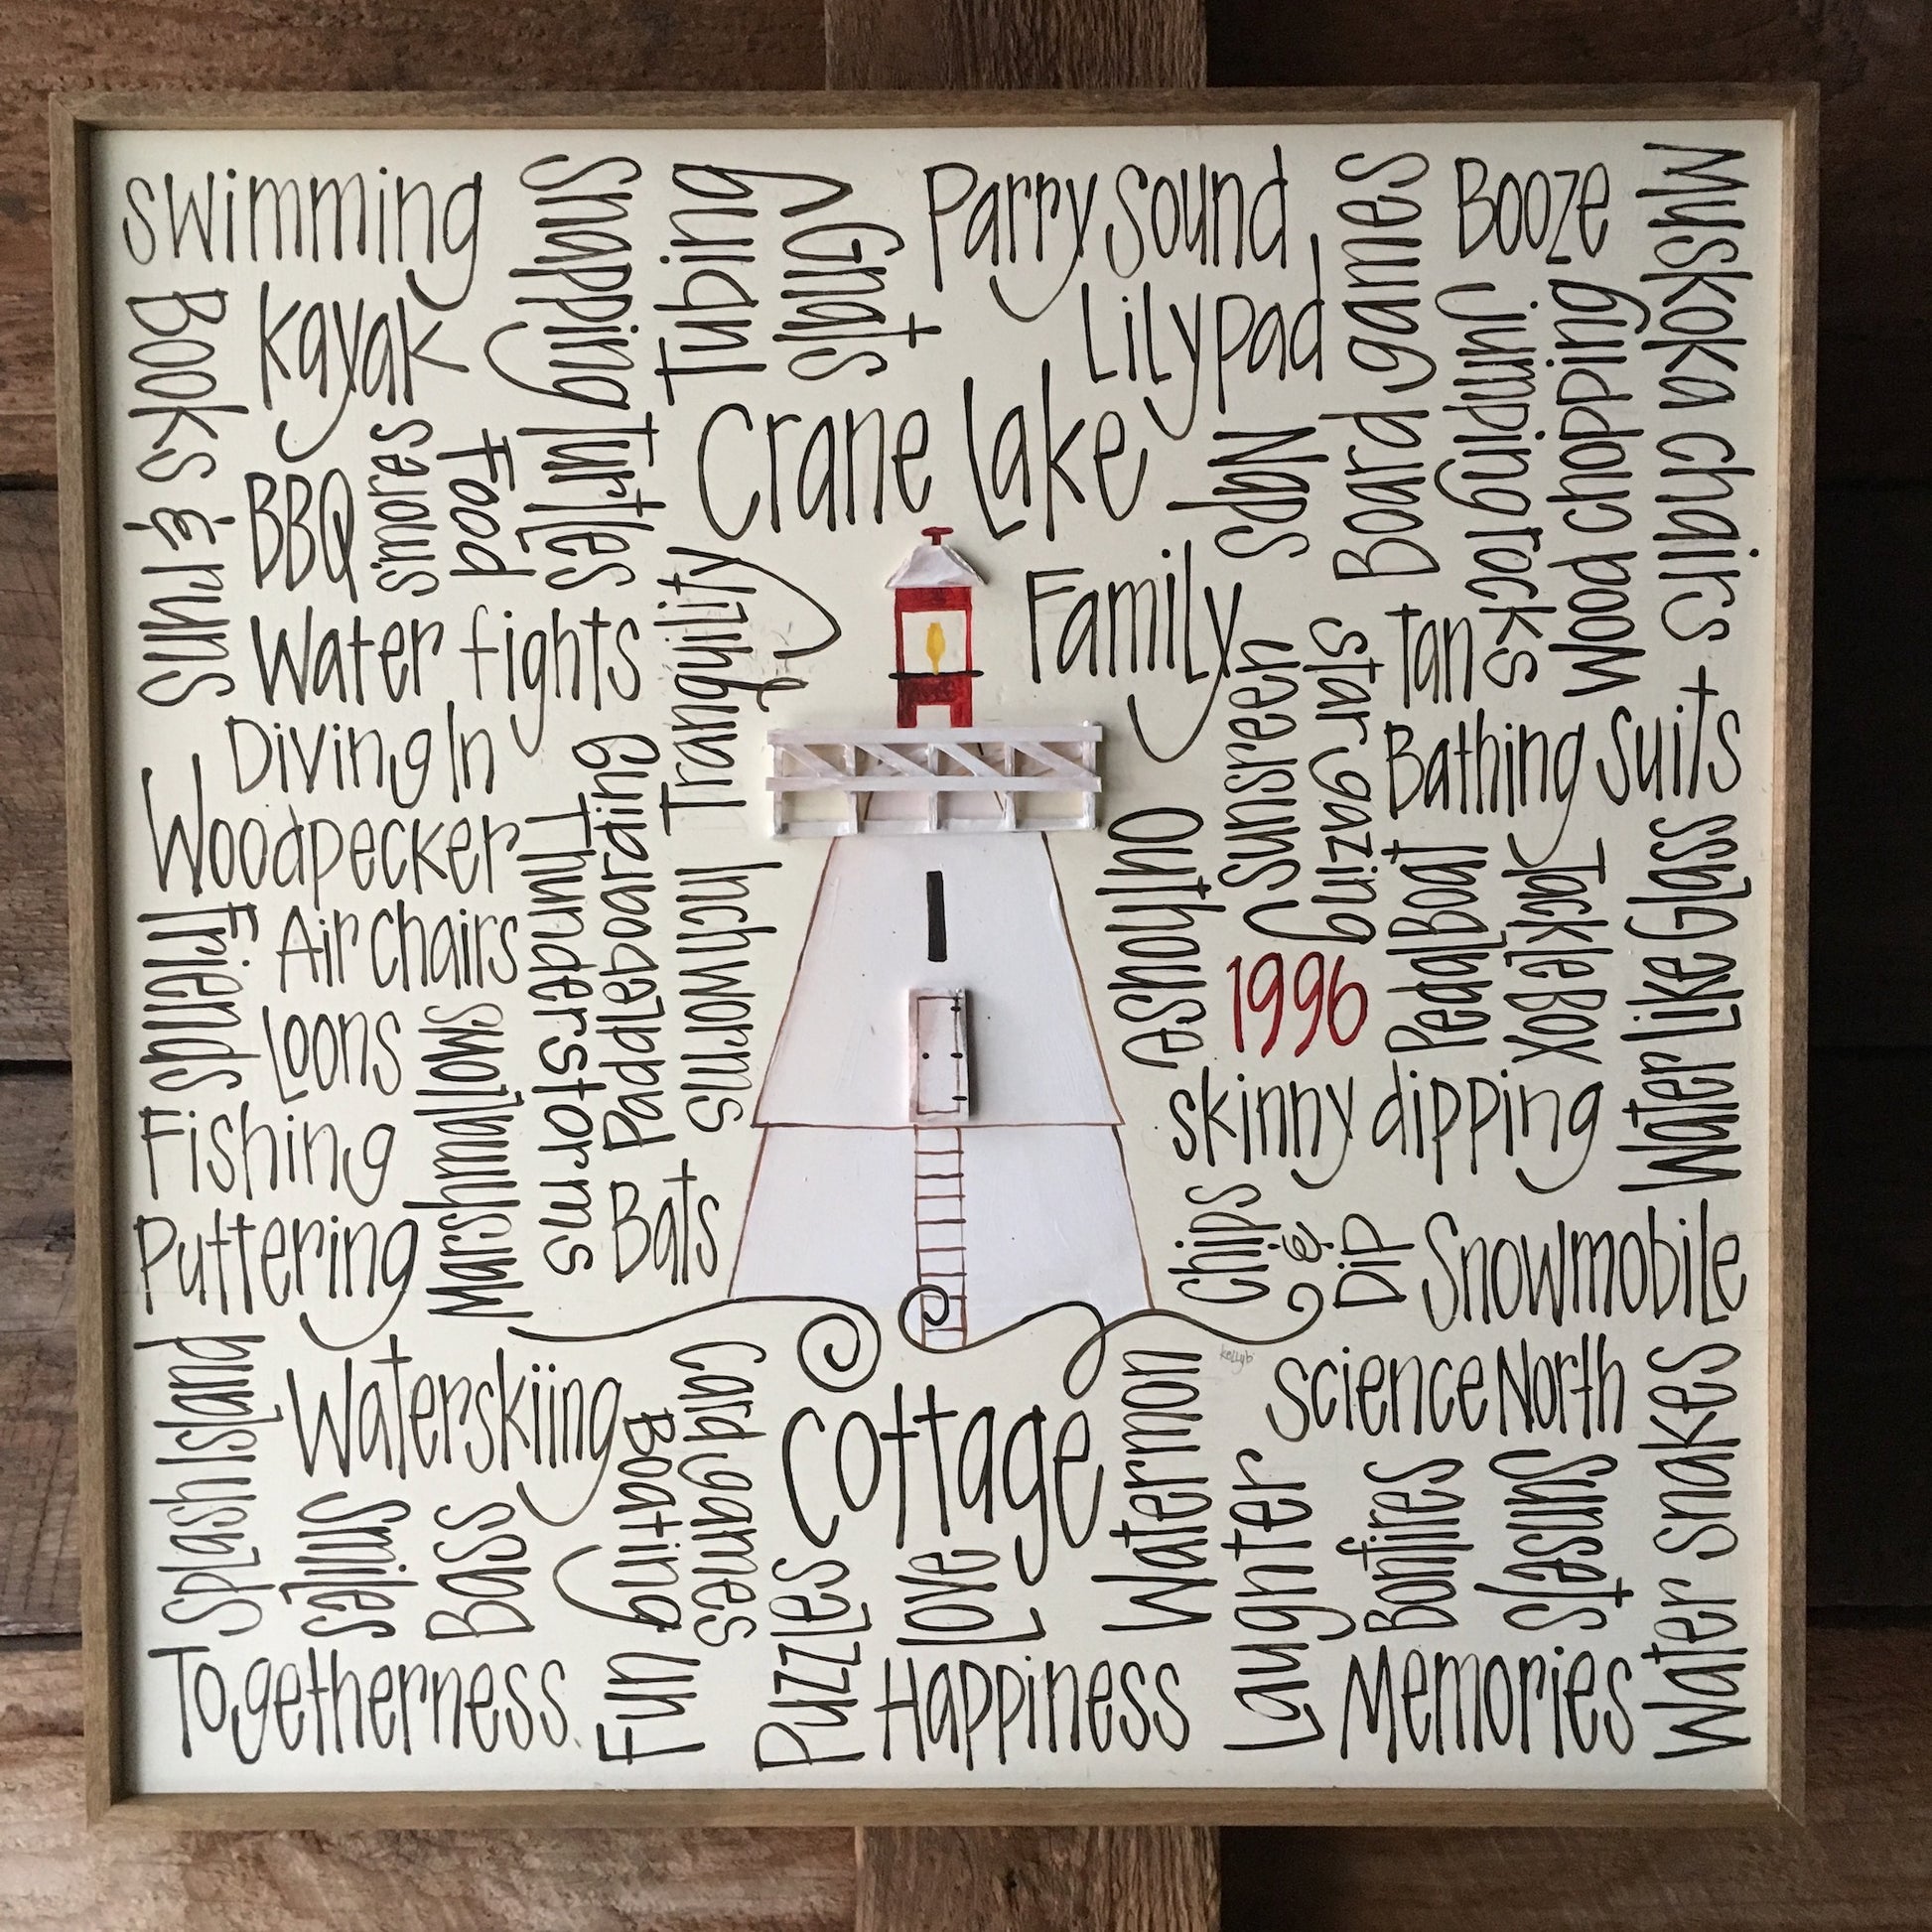 swimming
Snapping Turtles
Tubing
SLUGS +
Guns
Parry Sound
Lilypad
Board games
Booze
Jumping rocks
Wood chopping
Muskoka chairs +
Books &
Sun
kayak
BBQ
s'mores
Food
Crane Lake
Naps
Water fights
Tranquility
Family
Sunscreen
Star gazing
Tan
Bathing Suits
Diving In
Woodpecker
Thunderstorms
Paddleboarding
Inchworms
Outhouse
1996
Pedal Boat
JackleBox
Water Like Glass
Friends
Air Chairs
Loons
Marshmallows
Fishing
Puttering
Bats
skinny dipping
Chips
&
Dip
Snowmobile
kellyb
Splash Island
Waterskiing
smiles
Bass
Boating
Card games
cottage
Watermon
Science North
Laughter
Bonfires
Sunsets
Water snakes
Togetherness
Fun
Puzzles
Love
Happiness
Memories